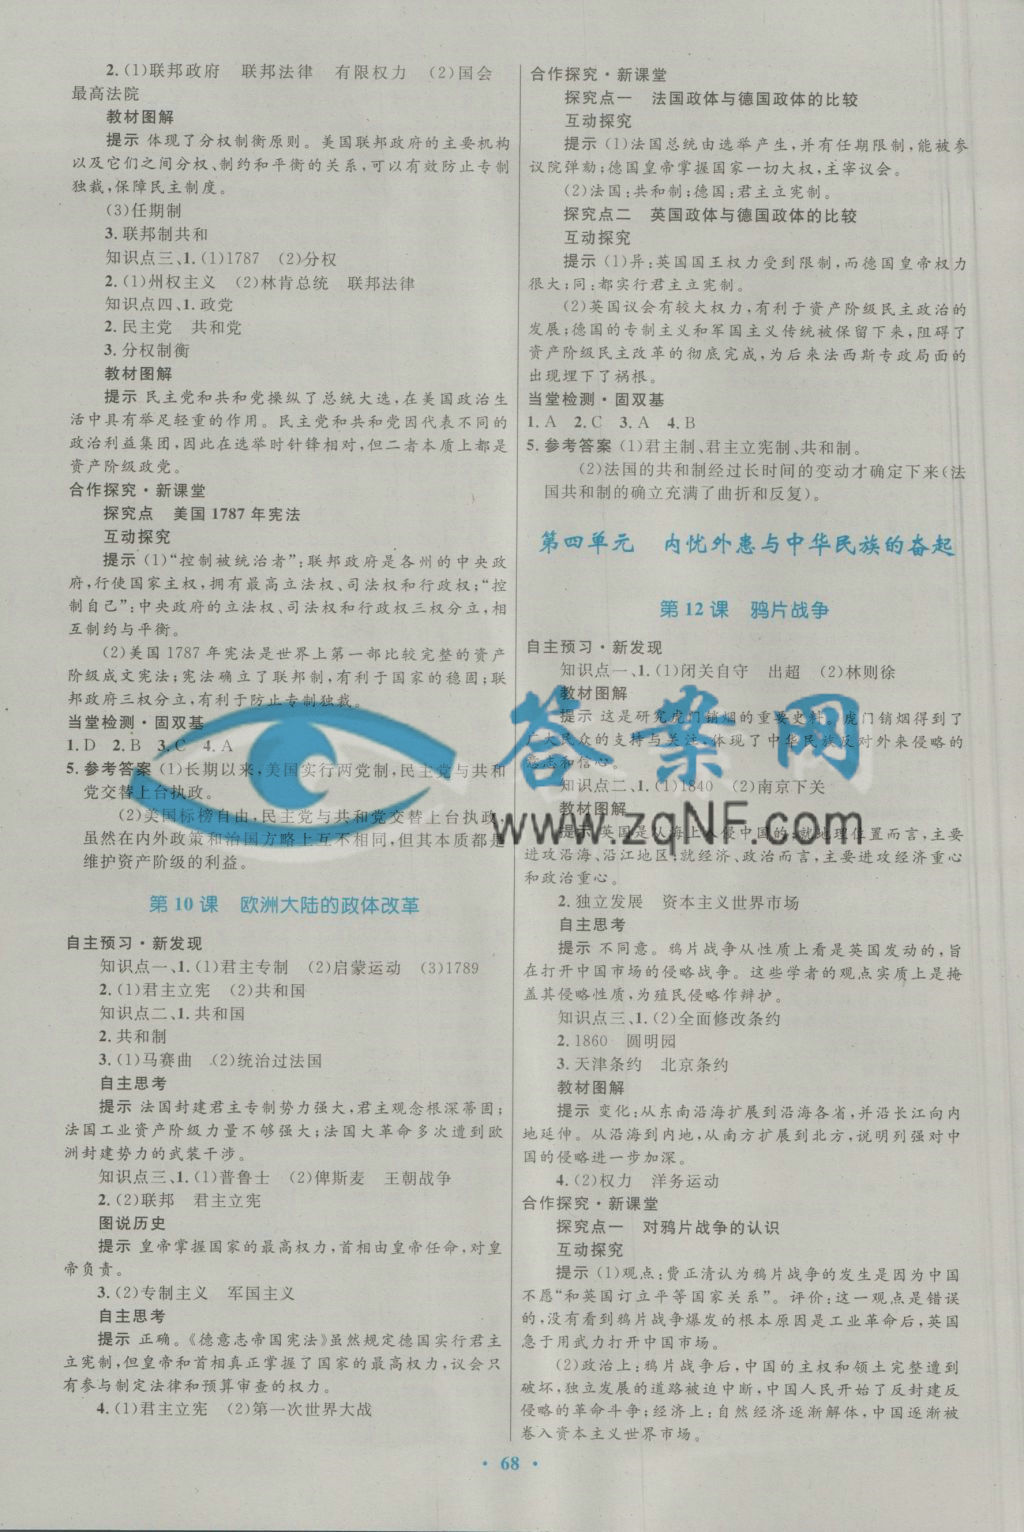 2.(1)联邦政府 联邦法律 有限权力 (2)国会
最高法院
教材图解
提示 体现了分权制衡原则。美国联邦政府的主要机构
以及它们之间分权、制约和平衡的关系,可以有效防止专制
独裁,保障民主制度。
(3)任期制
3.联邦制共和
知识点三、1.(1)1787 (2)分权
2.(1)州权主义 (2)林肯总统 联邦法律
知识点四、1.政党
2.民主党 共和党
3.分权制衡
教材图解
提示 民主党和共和党操纵了总统大选,在美国政治生
活中具有举足轻重的作用。民主党和共和党因代表不同的
政治利益集团,因此在选举时针锋相对,但二者本质上都是
资产阶级政党。
合作探究·新课堂
探究点 美国1787年宪法
互动探究
提示 (1)“控制被统治者”:联邦政府是各州的中央政
府,行使国家主权,拥有最高立法权、司法权和行政权;“控
制自己”:中央政府的立法权、司法权和行政权三权分立,相
互制约与平衡。
(2)美国1787年宪法是世界上第一部比较完整的资产
阶级成文宪法;宪法确立了联邦制,有利于国家的稳固;联
邦政府三权分立,有利于防止专制独裁。
当堂检测·固双基
1.D 2.B 3.C 4.A
5.参考答案 (1)长期以来,美国实行两党制,民主党与共和
党交替上台执政。
(2)美国标榜自由,民主党与共和党交替上台执政,
虽然在内外政策和治国方略上互不相同,但其本质都是
维护资产阶级的利益。
第10课 欧洲大陆的政体改革
自主预习·新发现
知识点一、1.(1)君主专制 (2)启蒙运动 (3)1789
2.(1)君主立宪 (2)共和国
知识点二、1.共和国
2.共和制
3.(1)马赛曲 (2)统治过法国
自主思考
提示 法国封建君主专制势力强大,君主观念根深蒂固;
法国工业资产阶级力量不够强大;法国大革命多次遭到欧
洲封建势力的武装干涉。
知识点三、1.(1)普鲁士 (2)俾斯麦 王朝战争
2.(2)联邦 君主立宪
图说历史
提示 皇帝掌握国家的最高权力,首相由皇帝任命,对皇
帝负责。
3.(2)专制主义 军国主义
自主思考
提示 正确。《德意志帝国宪法》虽然规定德国实行君主
立宪制,但皇帝和首相真正掌握了国家的最高权力,议会只
有参与制定法律和预算审查的权力。
4.(1)君主立宪 (2)第一次世界大战
合作探究·新课堂
探究点一 法国政体与德国政体的比较
互动探究
提示 (1)法国总统由选举产生,并有任期限制,能被参
议院弹劾;德国皇帝掌握国家一切大权,主宰议会。
(2)法国:共和制;德国:君主立宪制。
探究点二 英国政体与德国政体的比较
互动探究
提示 (1)异:英国国王权力受到限制,而德国皇帝权力
很大;同:都实行君主立宪制。
(2)英国议会有较大权力,有利于资产阶级民主政治的
发展;德国的专制主义和军国主义传统被保留下来,阻碍了
资产阶级民主改革的彻底完成,为后来法西斯专政局面的
出现埋下了祸根。
当堂检测·固双基
1.A 2.C 3.A 4.B
5.参考答案 (1)君主制、君主立宪制、共和制。
(2)法国的共和制经过长时间的变动才确定下来(法
国共和制的确立充满了曲折和反复)。
第四单元 内忧外患与中华民族的奋起
第12课 鸦片战争
自主预习·新发现
知识点一、1.(1)闭关自守 出超 (2)林则徐
教材图解
提示 这是研究虎门销烟的重要史料。虎门销烟得到了
广大民众的支持与关注,体现了中华民族反对外来侵略的
意志和信心。
知识点二、1.(1)1840 (2)南京下关
教材图解
提示 英国是从海上入侵中国的;就地理位置而言,主要
进攻沿海、沿江地区;就经济、政治而言,主要进攻经济重心
和政治重心。
2.独立发展 资本主义世界市场
自主思考
提示 不同意。鸦片战争从性质上看是英国发动的,旨
在打开中国市场的侵略战争。这些学者的观点实质上是掩
盖其侵略性质,为殖民侵略作辩护。
知识点三、1.(2)全面修改条约
2.1860 圆明园
3.天津条约 北京条约
教材图解
提示 变化:从东南沿海扩展到沿海各省,并沿长江向内
地延伸。从沿海到内地,从南方扩展到北方,说明列强对中
国的侵略进一步加深。
4.(2)权力 洋务运动
合作探究·新课堂
探究点一 对鸦片战争的认识
互动探究
提示 (1)观点:费正清认为鸦片战争的发生是因为中国
不愿“和英国订立平等国家关系”。评价:这一观点是错误
的,没有看到鸦片战争爆发的根本原因是工业革命后,英国
急于用武力打开中国市场。
(2)政治上:鸦片战争后,中国的主权和领土完整遭到
破坏,独立发展的道路被迫中断,中国人民开始了反封建反
侵略的革命斗争;经济上:自然经济逐渐解体,中国逐渐被
卷入资本主义世界市场。
答案网
www.zqNF.com
· 68 ·